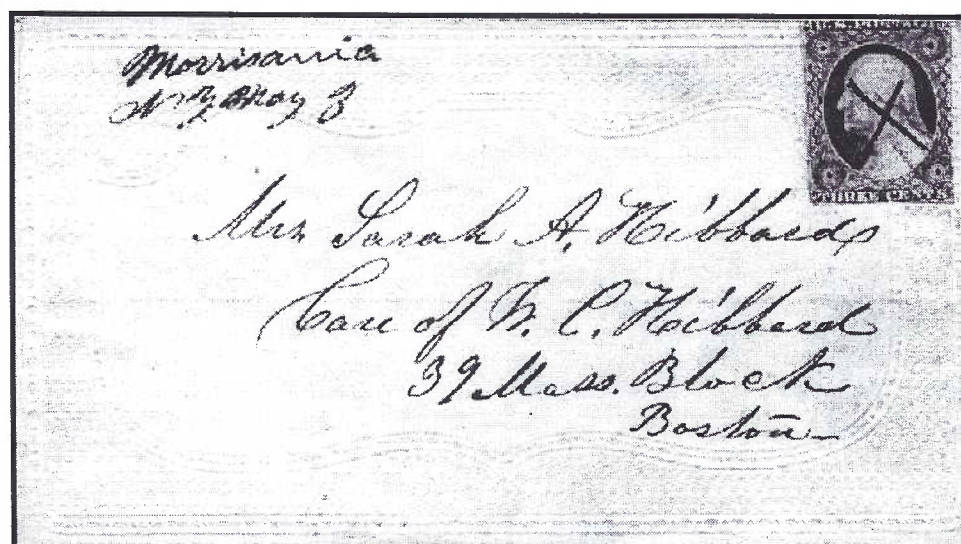 Morrisania
N Y May 3
THREE CENTS
Mrs Sarah A. Hibbard
Care of W. C. Hibbard
39 Mass. Block
Boston